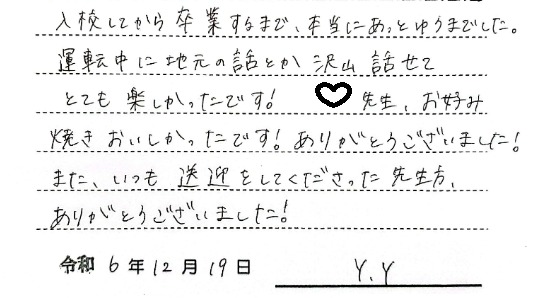 入校してから卒業するまで、本当にあっとゆうまでした。
運転中に地元の話とか沢山話せて
とても楽しかったです! 先生、お好み
焼きおいしかったです!ありがとうございました!
また、いつも送迎をしてくださった先生方、
ありがとうございました!
令和6年12月19日 Y.Y